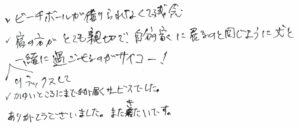 ✓ ビーチボールが借りられなくて残念
✓ 宿の方がとても親切で自分家に居るのと同じように犬と
一緒に過ごせるのがサイコー!
✓ リラックスして
✓ かゆいところにまで手が届くサービスでした。
ありがとうございました。また来たいです。